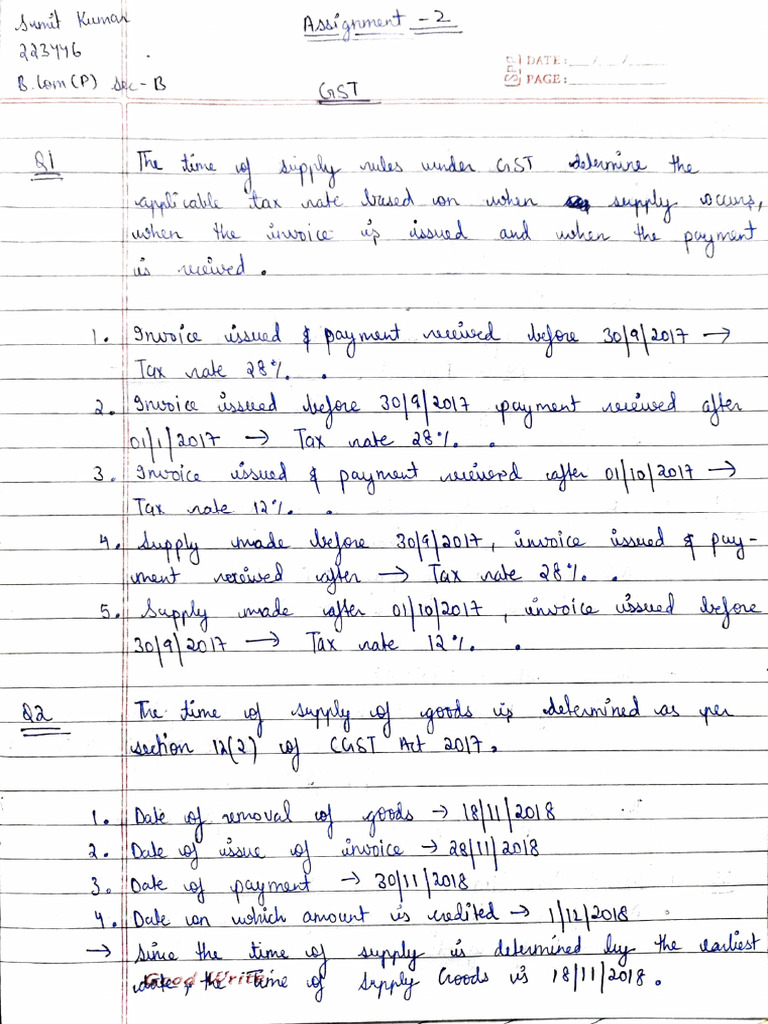 Sumit Kumar
Assignment - 2
223446
B.Com(P) Sec - B
SPP DATE:__/__/____
PAGE:________
GST
Q1 The time of supply rules under GST determine the
applicable tax rate based on when supply occurs,
when the invoice is issued and when the payment
is received.
1. Invoice issued & payment received before 30/9/2017 →
Tax rate 28%.
2. Invoice issued before 30/9/2017 payment received after
01/1/2017 → Tax rate 28%.
3. Invoice issued & payment received after 01/10/2017 →
Tax rate 12%.
4. Supply made before 30/9/2017, invoice issued & pay-
ment received after → Tax rate 28%.
5. Supply made after 01/10/2017, invoice issued before
30/9/2017 → Tax rate 12%.
Q2 The time of supply of goods is determined as per
section 12(2) of CGST Act 2017.
1. Date of removal of goods → 18/11/2018
2. Date of issue of invoice → 28/11/2018
3. Date of payment → 30/11/2018
4. Date on which amount is credited → 1/12/2018
→ Since the time of supply is determined by the earliest
date, the Time of Supply Goods is 18/11/2018.
Good Write